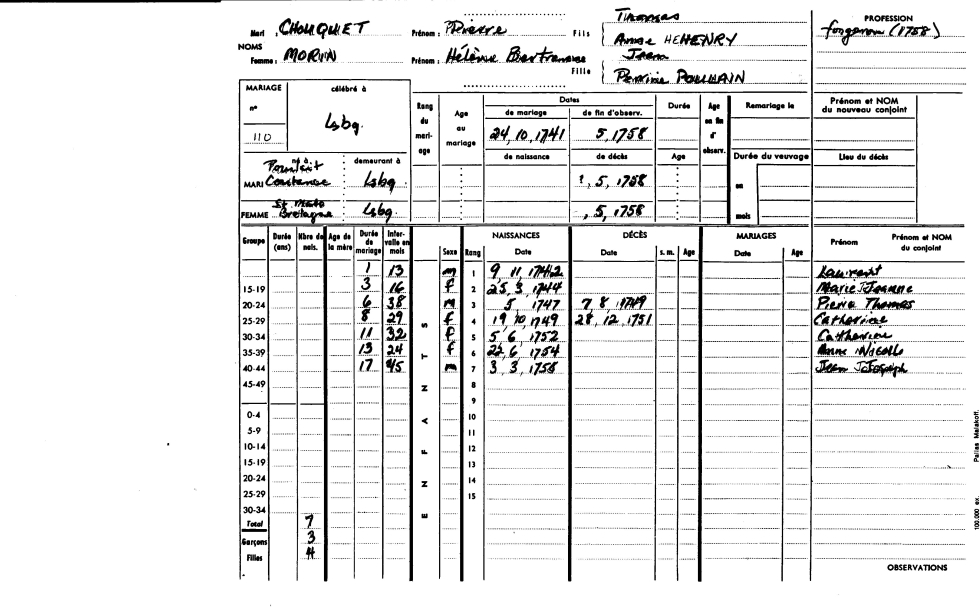 Mari : CHOUQUET Prénom : Pierre Fils Thomas PROFESSION
NOMS Anne HEHENRY forgeron (1758)
Femme : MORIN Prénom : Hélène Bertranne Fille Jean
Perrine POULHAIN
MARIAGE célébré à Rang du mariage Age au mariage Dates Durée Age en fin d'observ. Remariage le Prénom et NOM du nouveau conjoint
n° 110 Lsbg. de mariage de fin d'observ.
24, 10, 1741 5, 1758
né à demeurant à de naissance de décès Age Durée du veuvage Lieu du décès
MARI Constance Lsbg ?, 5, 1758 en
FEMME St Malo Bretagne Lsbg. , 5, 1758 mois
Groupe Durée (ans) Nbre de nais. Age de la mère Durée de mariage Intervalle en mois ENFANTS Sexe Rang NAISSANCES Date DÉCÈS Date s. m. Age MARIAGES Date Age Prénom Prénom et NOM du conjoint
1 13 m 1 9, 11, 1742 Laurent
15-19 3 16 f 2 25, 3, 1744 Marie Jeanne
20-24 6 38 m 3 5, 1747 7, 8, 1749 Pierre Thomas
25-29 8 29 f 4 19, 10, 1749 28, 12, 1751 Catherine
30-34 11 32 f 5 5, 6, 1752 Catherine
35-39 13 24 f 6 22, 6, 1754 Anne Nicolle
40-44 17 45 m 7 3, 3, 1758 Jean Joseph
45-49 8
9
0-4 10
5-9 11
10-14 12
15-19 13
20-24 14
25-29 15
30-34
Total 7
Garçons 3
Filles 4
OBSERVATIONS
100.000 ex. Malakoff.